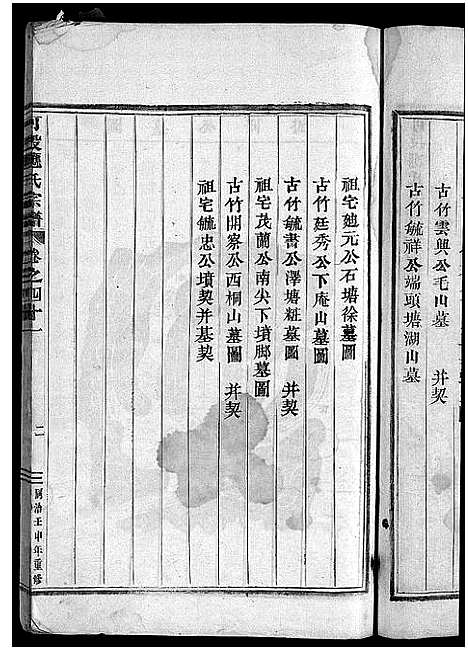 古竹雲興公毛山墓　并契
古竹毓祥公端頭塘湖山墓
祖宅廸元公石塘徐墓圖
古竹廷秀公下庵山墓圖
古竹毓書公澤塘粧墓圖　并契
祖宅茂蘭公南尖下墳脚墓圖
古竹開察公西桐山墓圖　并契
祖宅毓忠公墳契并基契
氏宗譜
卷之四十一
二
同治壬申年重修